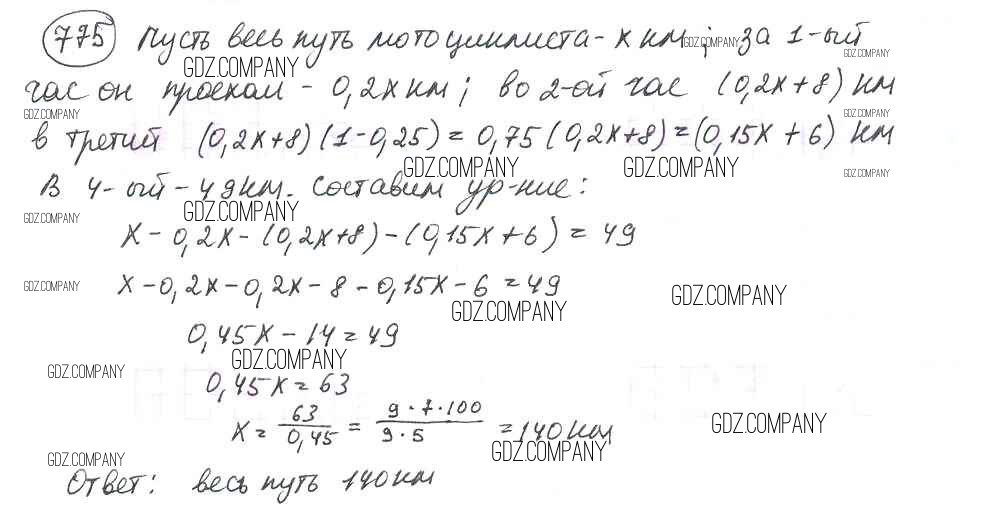 775 Пусть весь путь мотоциклиста - x км ; за 1-ый
GDZ.COMPANY
GDZ.COMPANY
GDZ.COMPANY
час он проехал - 0,2x км; во 2-ой час (0,2x+8) км
GDZ.COMPANY
GDZ.COMPANY
в третий (0,2x+8)(1-0,25) = 0,75(0,2x+8) = (0,15x + 6) км
GDZ.COMPANY
GDZ.COMPANY
GDZ.COMPANY
В 4-ый - 49км. Составим ур-ние:
GDZ.COMPANY
GDZ.COMPANY
x - 0,2x - (0,2x+8) - (0,15x+6) = 49
x - 0,2x - 0,2x - 8 - 0,15x - 6 = 49
GDZ.COMPANY
GDZ.COMPANY
GDZ.COMPANY
0,45x - 14 = 49
GDZ.COMPANY
GDZ.COMPANY
0,45x = 63
x = 63/0,45 = 9·7·100/9·5 = 140 км
GDZ.COMPANY
GDZ.COMPANY
GDZ.COMPANY
Ответ: весь путь 140 км